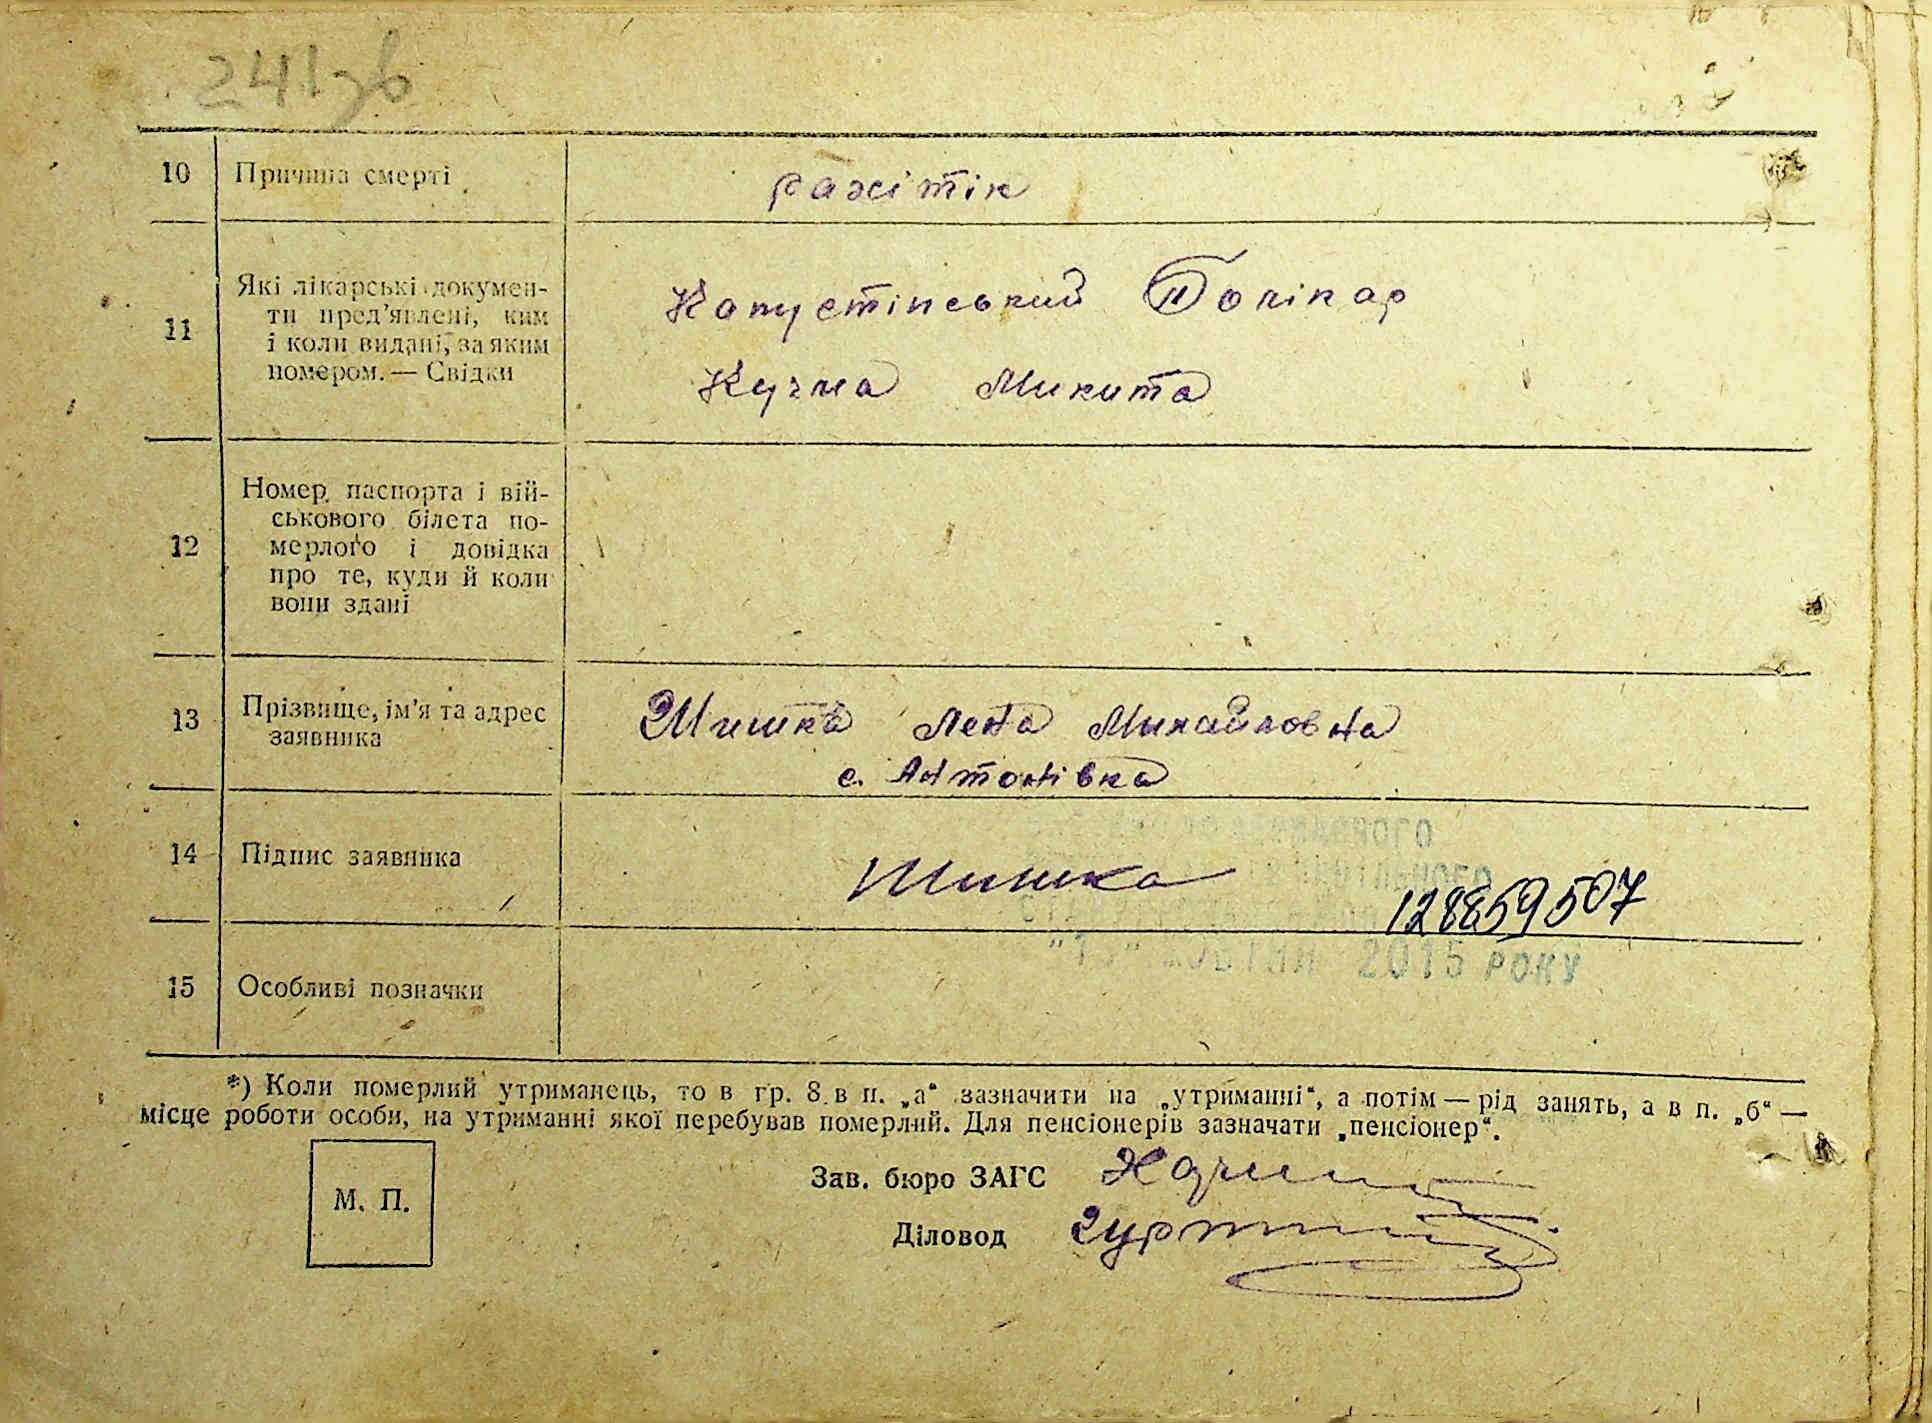 241зв
10 Причина смерті рахітік
11 Які лікарські документи
ти пред'явлені, ким
і коли видані, за яким
номером. — Свідки
Капустінський Полікар
Кучма Микита
12 Номер паспорта і вій-
ськового білета по-
мерлого і довідка
про те, куди й коли
вони здані
13 Прізвище, ім'я та адрес
заявника
Шишка Лена Михайловна
с. Антонівка
14 Підпис заявника Шишка
128859507
2015 РОКУ
15 Особливі позначки
*) Коли померлий утриманець, то в гр. 8 в п. „а“ зазначити на „утриманні“, а потім — рід занять, а в п. „б“ —
місце роботи особи, на утриманні якої перебував померлий. Для пенсіонерів зазначати „пенсіонер“.
М. П.
Зав. бюро ЗАГС
Діловод